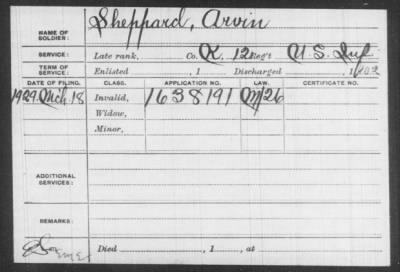 NAME OF SOLDIER: Sheppard, Arvin
SERVICE: Late rank, Co. K, 12 Reg't U S Inf
TERM OF SERVICE: Enlisted , 1 Discharged , 1902
DATE OF FILING. CLASS. APPLICATION NO. LAW. CERTIFICATE NO.
1929 Mch 18 Invalid, 1638191
Widow,
Minor,
ADDITIONAL SERVICES:
REMARKS:
Died , 1 , at